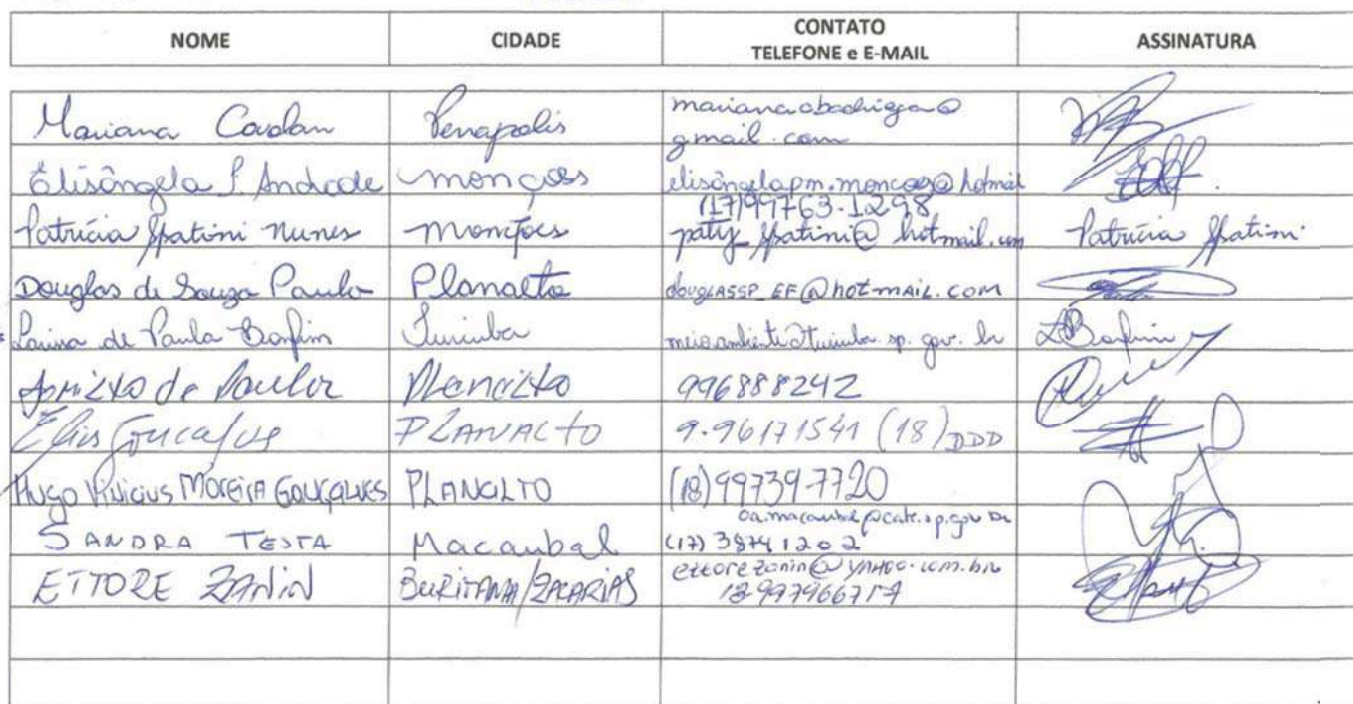 NOME CIDADE CONTATO TELEFONE e E-MAIL ASSINATURA
Mariana Cavalan Penapolis marianacbadriga@
gmail.com
Elisângela P. Andrade monções elisangelapm.moncoes@hotmail
(17)99763-1298
Patrícia Spatini Nunes monções paty_spatini@hotmail.com Patrícia Spatini
Douglas de Souza Paulo Planalto douglassp_ef@hotmail.com
de Paula Bonfim Turiuba meioambiente@turiuba.sp.gov.br LBonfim
de Paula Planalto 996888242
Elis Goncalves PLANALTO 9.96171541 (18) DDD
Hugo Vinicius Moreira Gonçalves PLANALTO (18) 997397720
ca.macaubal@cati.sp.gov.br
SANDRA TESTA Macaubal (17) 38741202
ETTORE ZANIN BURITAMA/ZACARIAS ettorezanin@yahoo.com.br